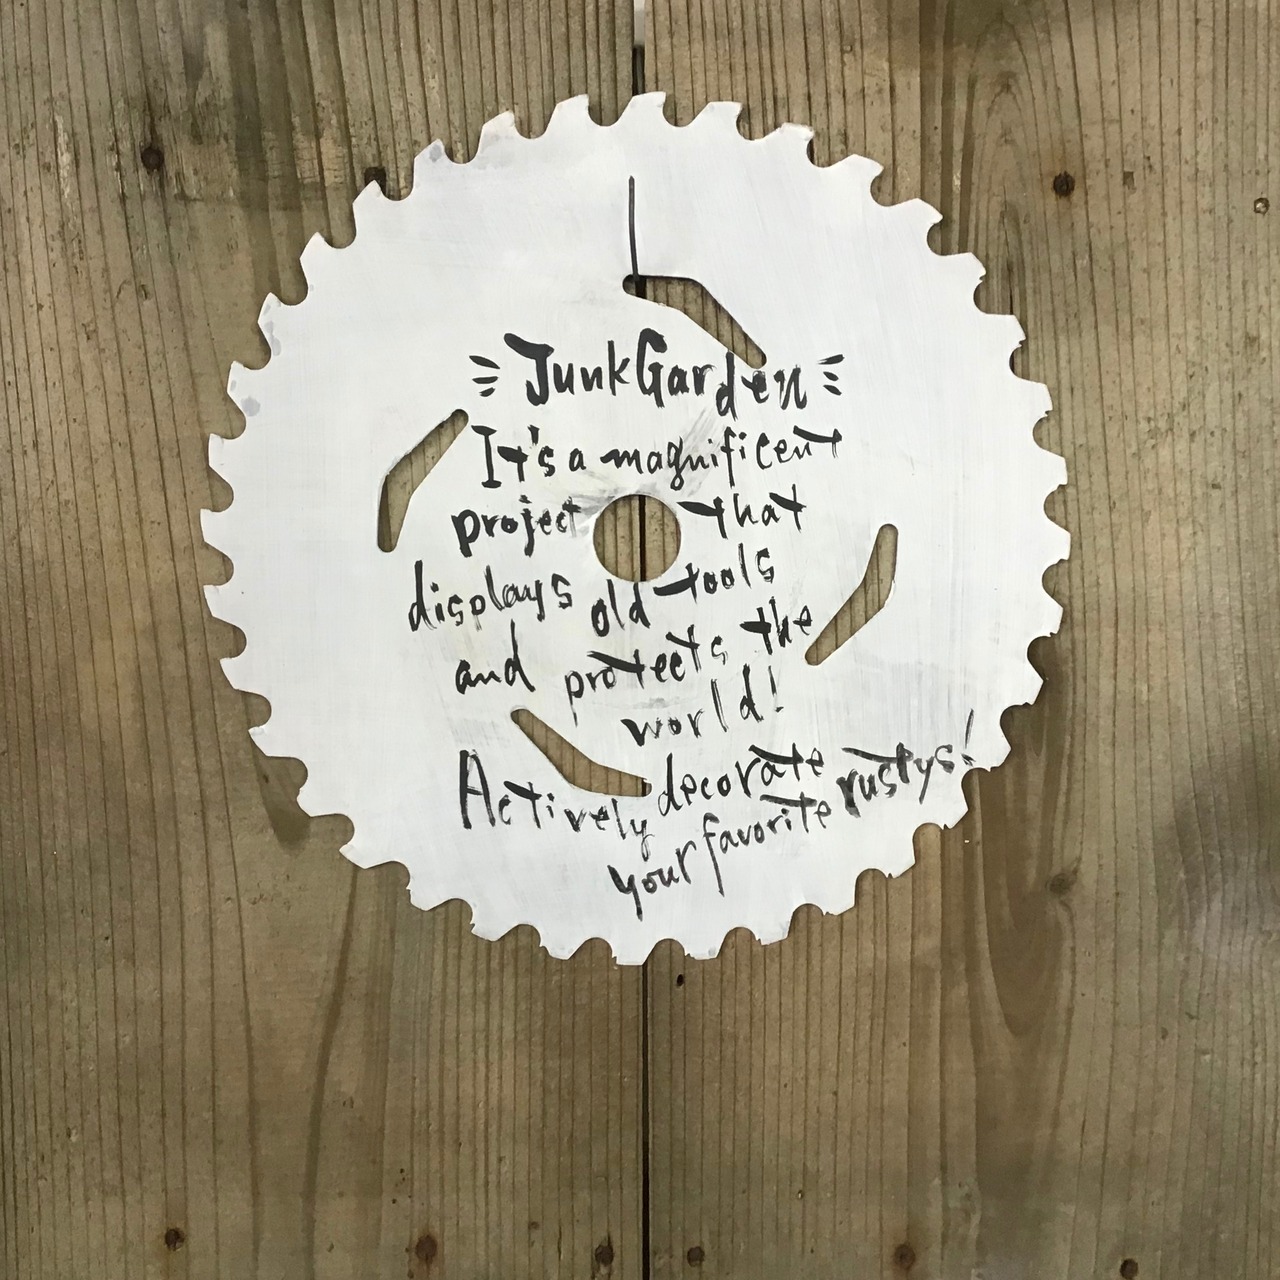 JunkGarden
It's a magnificent
project that
displays old tools
and protects the
world!
Actively decorate
your favorite rustys!